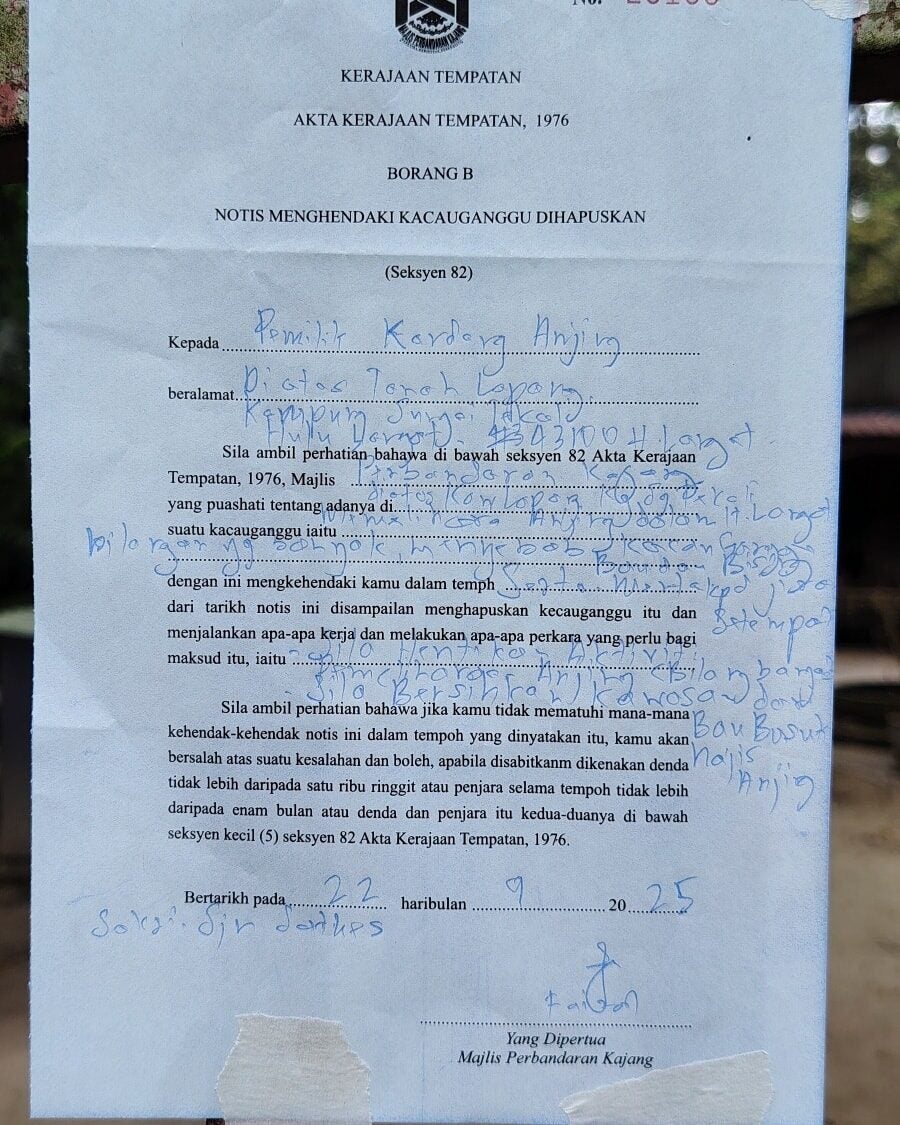 MAJLIS PERBANDARAN KAJANG
No.
KERAJAAN TEMPATAN
AKTA KERAJAAN TEMPATAN, 1976
BORANG B
NOTIS MENGHENDAKI KACAUGANGGU DIHAPUSKAN
(Seksyen 82)
Kepada Pemilik Kandang Anjing
beralamat Diatas Tanah Lapang,
Kampung Sungai
Hulu Langat, 43100 H. Langat
Sila ambil perhatian bahawa di bawah seksyen 82 Akta Kerajaan
Tempatan, 1976, Majlis Perbandaran Kajang
yang puashati tentang adanya di diatas
suatu kacauganggu iaitu Memelihara Anjing dalam
bilangan yg banyak, menyebabkan
Bau dan Bising
dengan ini mengkehendaki kamu dalam temph Serta Merta
dari tarikh notis ini disampailan menghapuskan kecauganggu itu dan
setempat
menjalankan apa-apa kerja dan melakukan apa-apa perkara yang perlu bagi
maksud itu, iaitu Sila Hentikan Aktiviti
Memelihara Anjing
Sila Bersihkan kawasan
Sila ambil perhatian bahawa jika kamu tidak mematuhi mana-mana
kehendak-kehendak notis ini dalam tempoh yang dinyatakan itu, kamu akan
Bau Busuk
bersalah atas suatu kesalahan dan boleh, apabila disabitkanm dikenakan denda
Najis
tidak lebih daripada satu ribu ringgit atau penjara selama tempoh tidak lebih
Anjing
daripada enam bulan atau denda dan penjara itu kedua-duanya di bawah
seksyen kecil (5) seksyen 82 Akta Kerajaan Tempatan, 1976.
Bertarikh pada 22 haribulan 9 2025
Saksi:
Yang Dipertua
Majlis Perbandaran Kajang